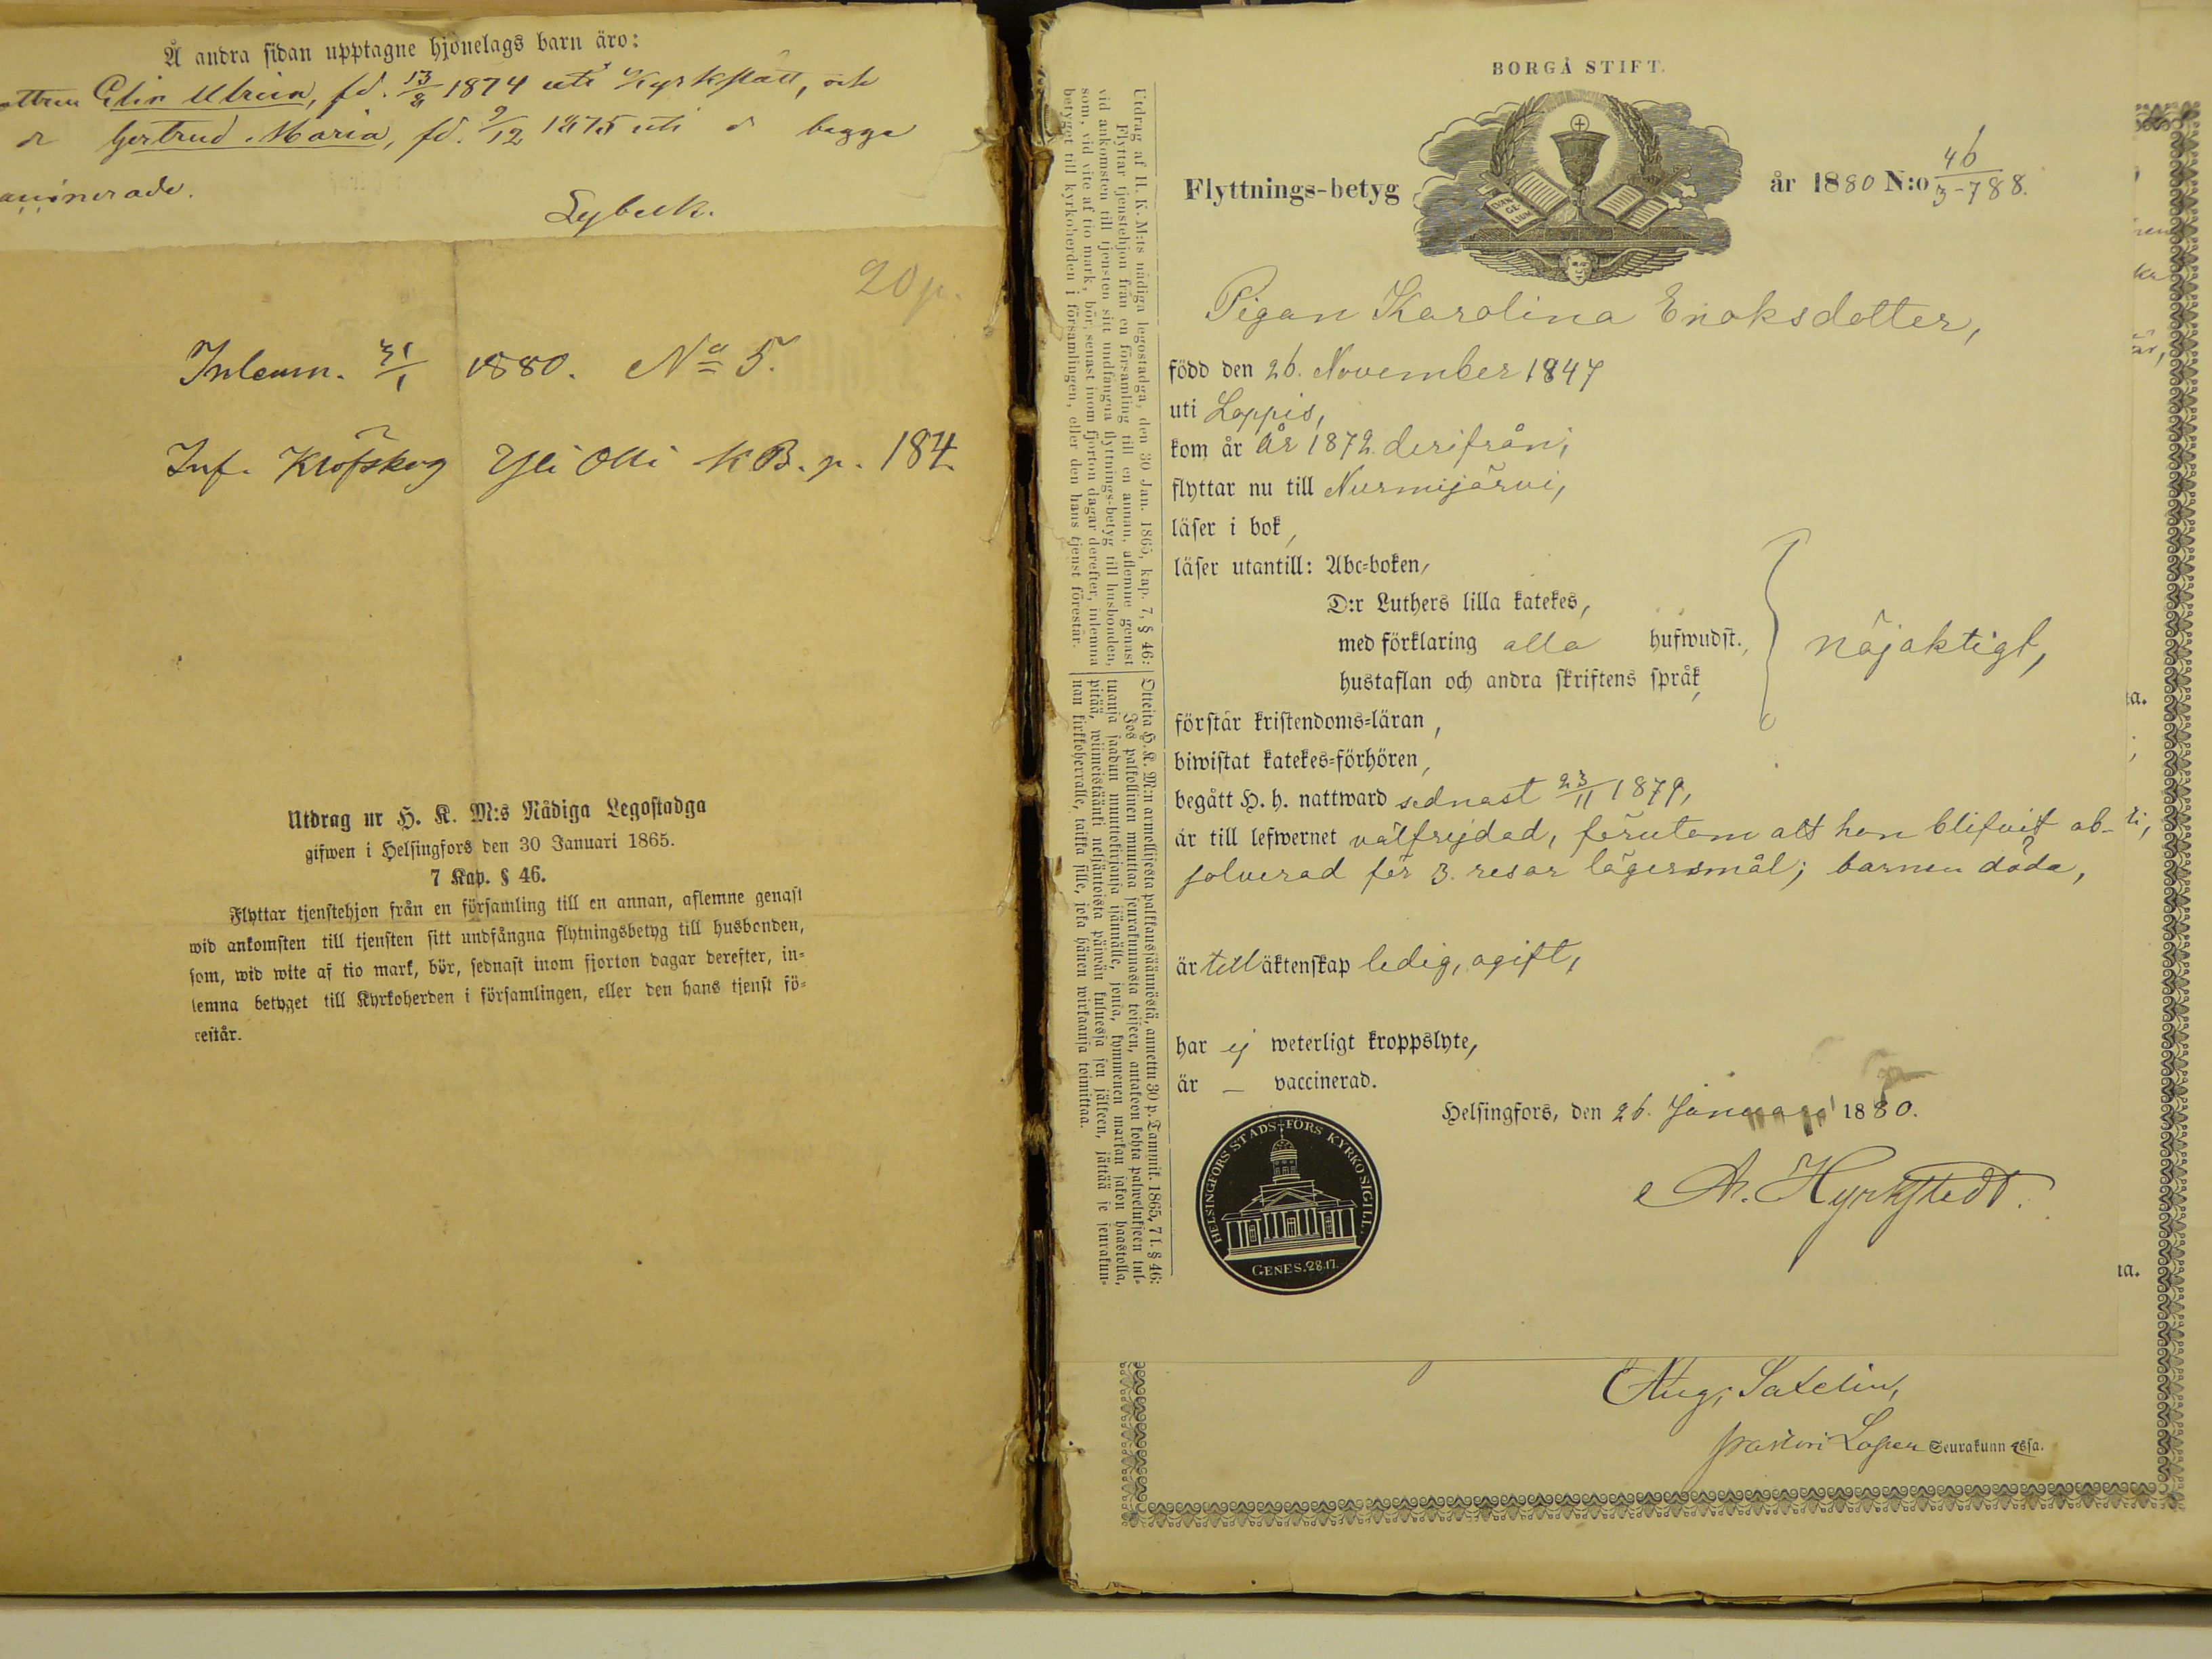 Å andra sidan upptagne hjonelags barn äro:
Elin Ulrica, fd. 13/8 1874 uti Kyrkslätt, och
Gertrud Maria, fd. 9/12 1875 uti d:o bagge
Lybeck.
20 p.
Inlemn. 31/1 1880. No 5.
Inf. Klöfskog Yli Olli K.B. p. 184.
Utdrag ur H. K. M:s Nådiga Legostadga
gifwen i Helsingfors den 30 Januari 1865.
7 Kap. § 46.
Flyttar tjenstehjon från en församling till en annan, aflemne genast
wid ankomsten till tjensten sitt undfångna flytningsbetyg till husbonden,
som, wid wite af tio mark, bör, sednast inom fjorton dagar derefter, in-
lemna betyget till Kyrkoherden i församlingen, eller den hans tjenst fö-
restår.
BORGÅ STIFT.
Flyttnings-betyg
EVANGELIUM
år 1880 N:o 46/3-788.
Pigan Karolina Enoksdotter,
född den 26. November 1847
uti Loppis,
kom år år 1872 derifrån;
flyttar nu till Nurmijärvi,
läser i bok,
läser utantill: Abc-boken,
D:r Luthers lilla katekes,
med förklaring alla hufwudst.,
hustaflan och andra skriftens språk,
nöjaktigt,
förstår kristendoms-läran,
biwistat katekes-förhören,
begått H. h. nattward sednast 23/11 1879,
är till lefwernet välfrejdad, förutom att hon blifvit ab-
solverad för 3. resor lägersmål; barnen döda,
är till äktenskap ledig, ogift,
har ej weterligt kroppslyte,
är — vaccinerad.
Helsingfors, den 26. Januari 1880.
A. Hyrkstedt.
HELSINGFORS STADS-FÖRS KYRKO SIGILL.
GENES. 28.17.
Utdrag af H. K. M:ts nådiga legostadga, den 30 Jan. 1865, kap. 7, § 46:
Flyttar tjenstehjon från en församling till en annan, aflemne genast
vid ankomsten till tjensten sitt undfångna flyttnings-betyg till husbonden,
som, vid vite af tio mark, bör, senast inom fjorton dagar derefter, inlemna
betyget till kyrkoherden i församlingen, eller den hans tjenst förestår.
Otteita H. K. M:n armollisesta palkkaussäännöstä, annettu 30 p. Tammik. 1865, 7 l. § 46:
Jos palkollinen muuttaa seurakunnasta toiseen, antakoon kohta palwelukseen tul-
tuansa saadun muuttokirjansa isännälle, jonka, kymmenen markan sakon haastolla,
pitää, wiimeistäänki neljäntoista päiwän kuluessa sen jälkeen, jättää se seurakun-
nan kirkkoherralle, taikka sille, joka hänen wirkaansa toimittaa.
Pastori Seurakunn ssa.